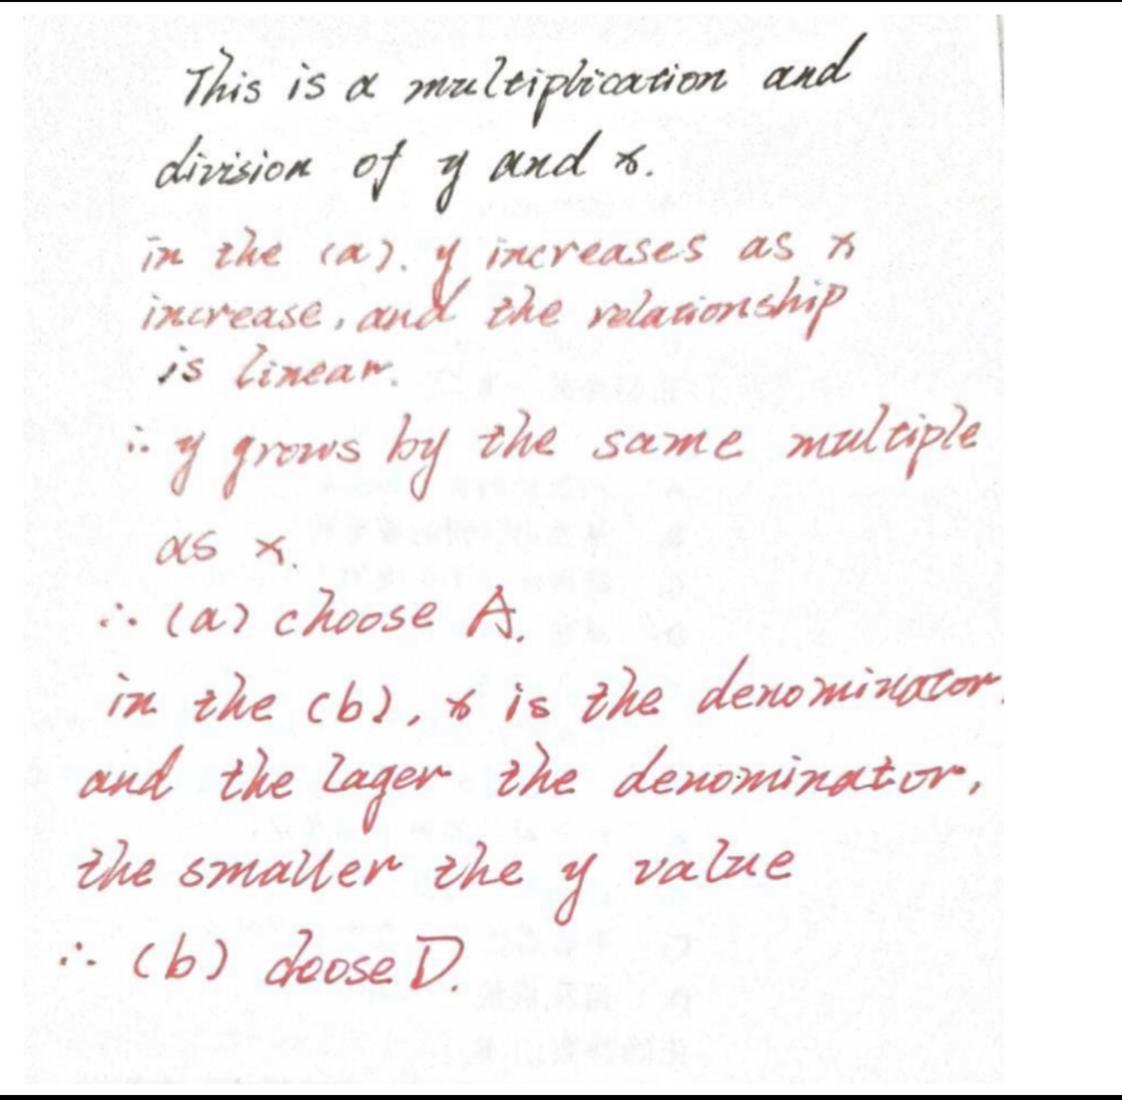 This is a multiplication and
division of y and x.
in the (a). y increases as x
increase, and the relationship
is linear.
∴ y grows by the same multiple
as x.
∴ (a) choose A.
in the (b), x is the denominator.
and the lager the denominator,
the smaller the y value
∴ (b) doose D.